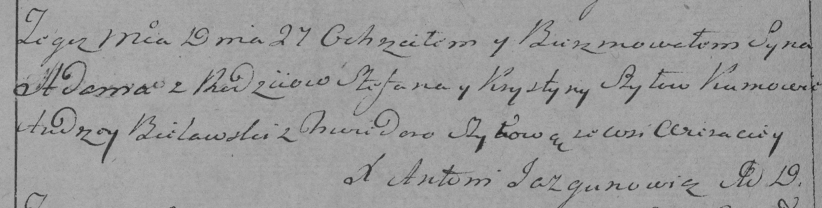 Tegoż Mca Dnia 27 Ochrzciłem y Bierzmowałem Syna
Adama z Rodziiow Stefana y Krystyny Szyłow Kumowie
Andrzey Bielawski z Szyłową ze wsi
X Antoni Jazgunowicz AD.